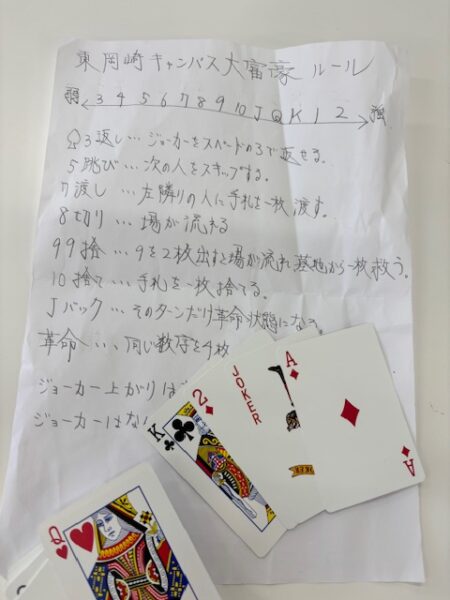 東岡崎キャンパス大富豪 ルール
弱 3 4 5 6 7 8 9 10 J Q K 1 2 強
♤3返し…ジョーカーをスペードの3で返せる。
5跳び…次の人をスキップする。
7渡し…左隣りの人に手札を一枚渡す。
8切り…場が流れる
99捨…9を2枚出すと場が流れ墓地から一枚救う。
10捨て…手札を一枚捨てる。
Jバック…そのターンだけ革命状態になる。
革命…同じ数字を4枚
ジョーカー上がりは
ジョーカーはな
K
2
JOKER
A
A
Q